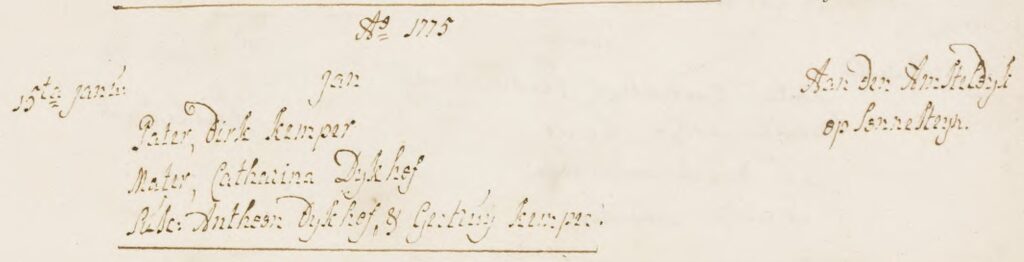 Aº 1775
15ta Janu: Jan Aan den Amsteldyk
Pater, Dirk Kemper op Sonnesteyn.
Mater, Catharina Dykhof
Susc: Anthoon Dykhof, & Gertruy Kemper.